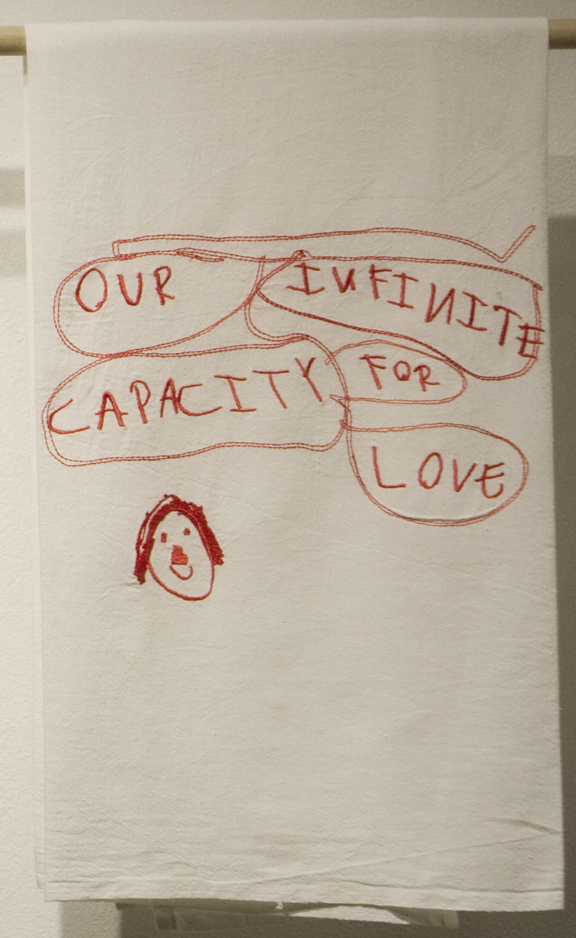 OUR INFINITE
CAPACITY FOR
LOVE